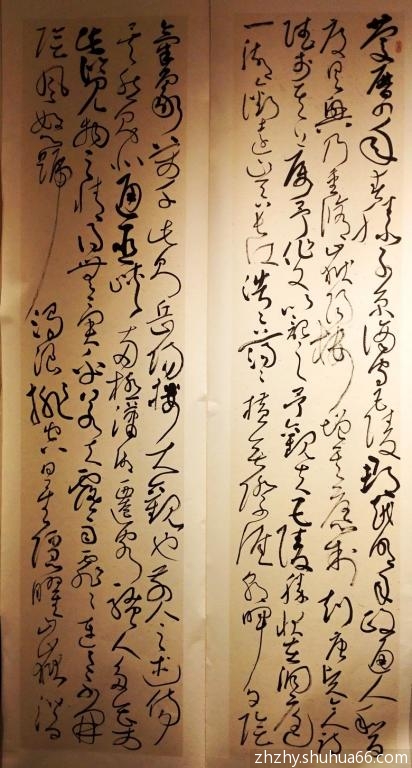 慶曆四年春滕子京謫守巴陵郡越明年政通人和百
廢具興乃重脩岳陽樓增其舊制刻唐賢今人詩
賦於其上屬予作文以記之予觀夫巴陵勝狀在洞庭
一湖銜遠山吞長江浩浩湯湯橫無際涯朝暉夕陰
氣象萬千此則岳陽樓大觀也前人之述備
矣然則北通巫峽南極瀟湘遷客騷人多會於
此覽物之情得無異乎若夫霪雨霏霏連月不開
陰風怒號濁浪排空日星隱曜山岳潛
zhzhy.shuhua66.com